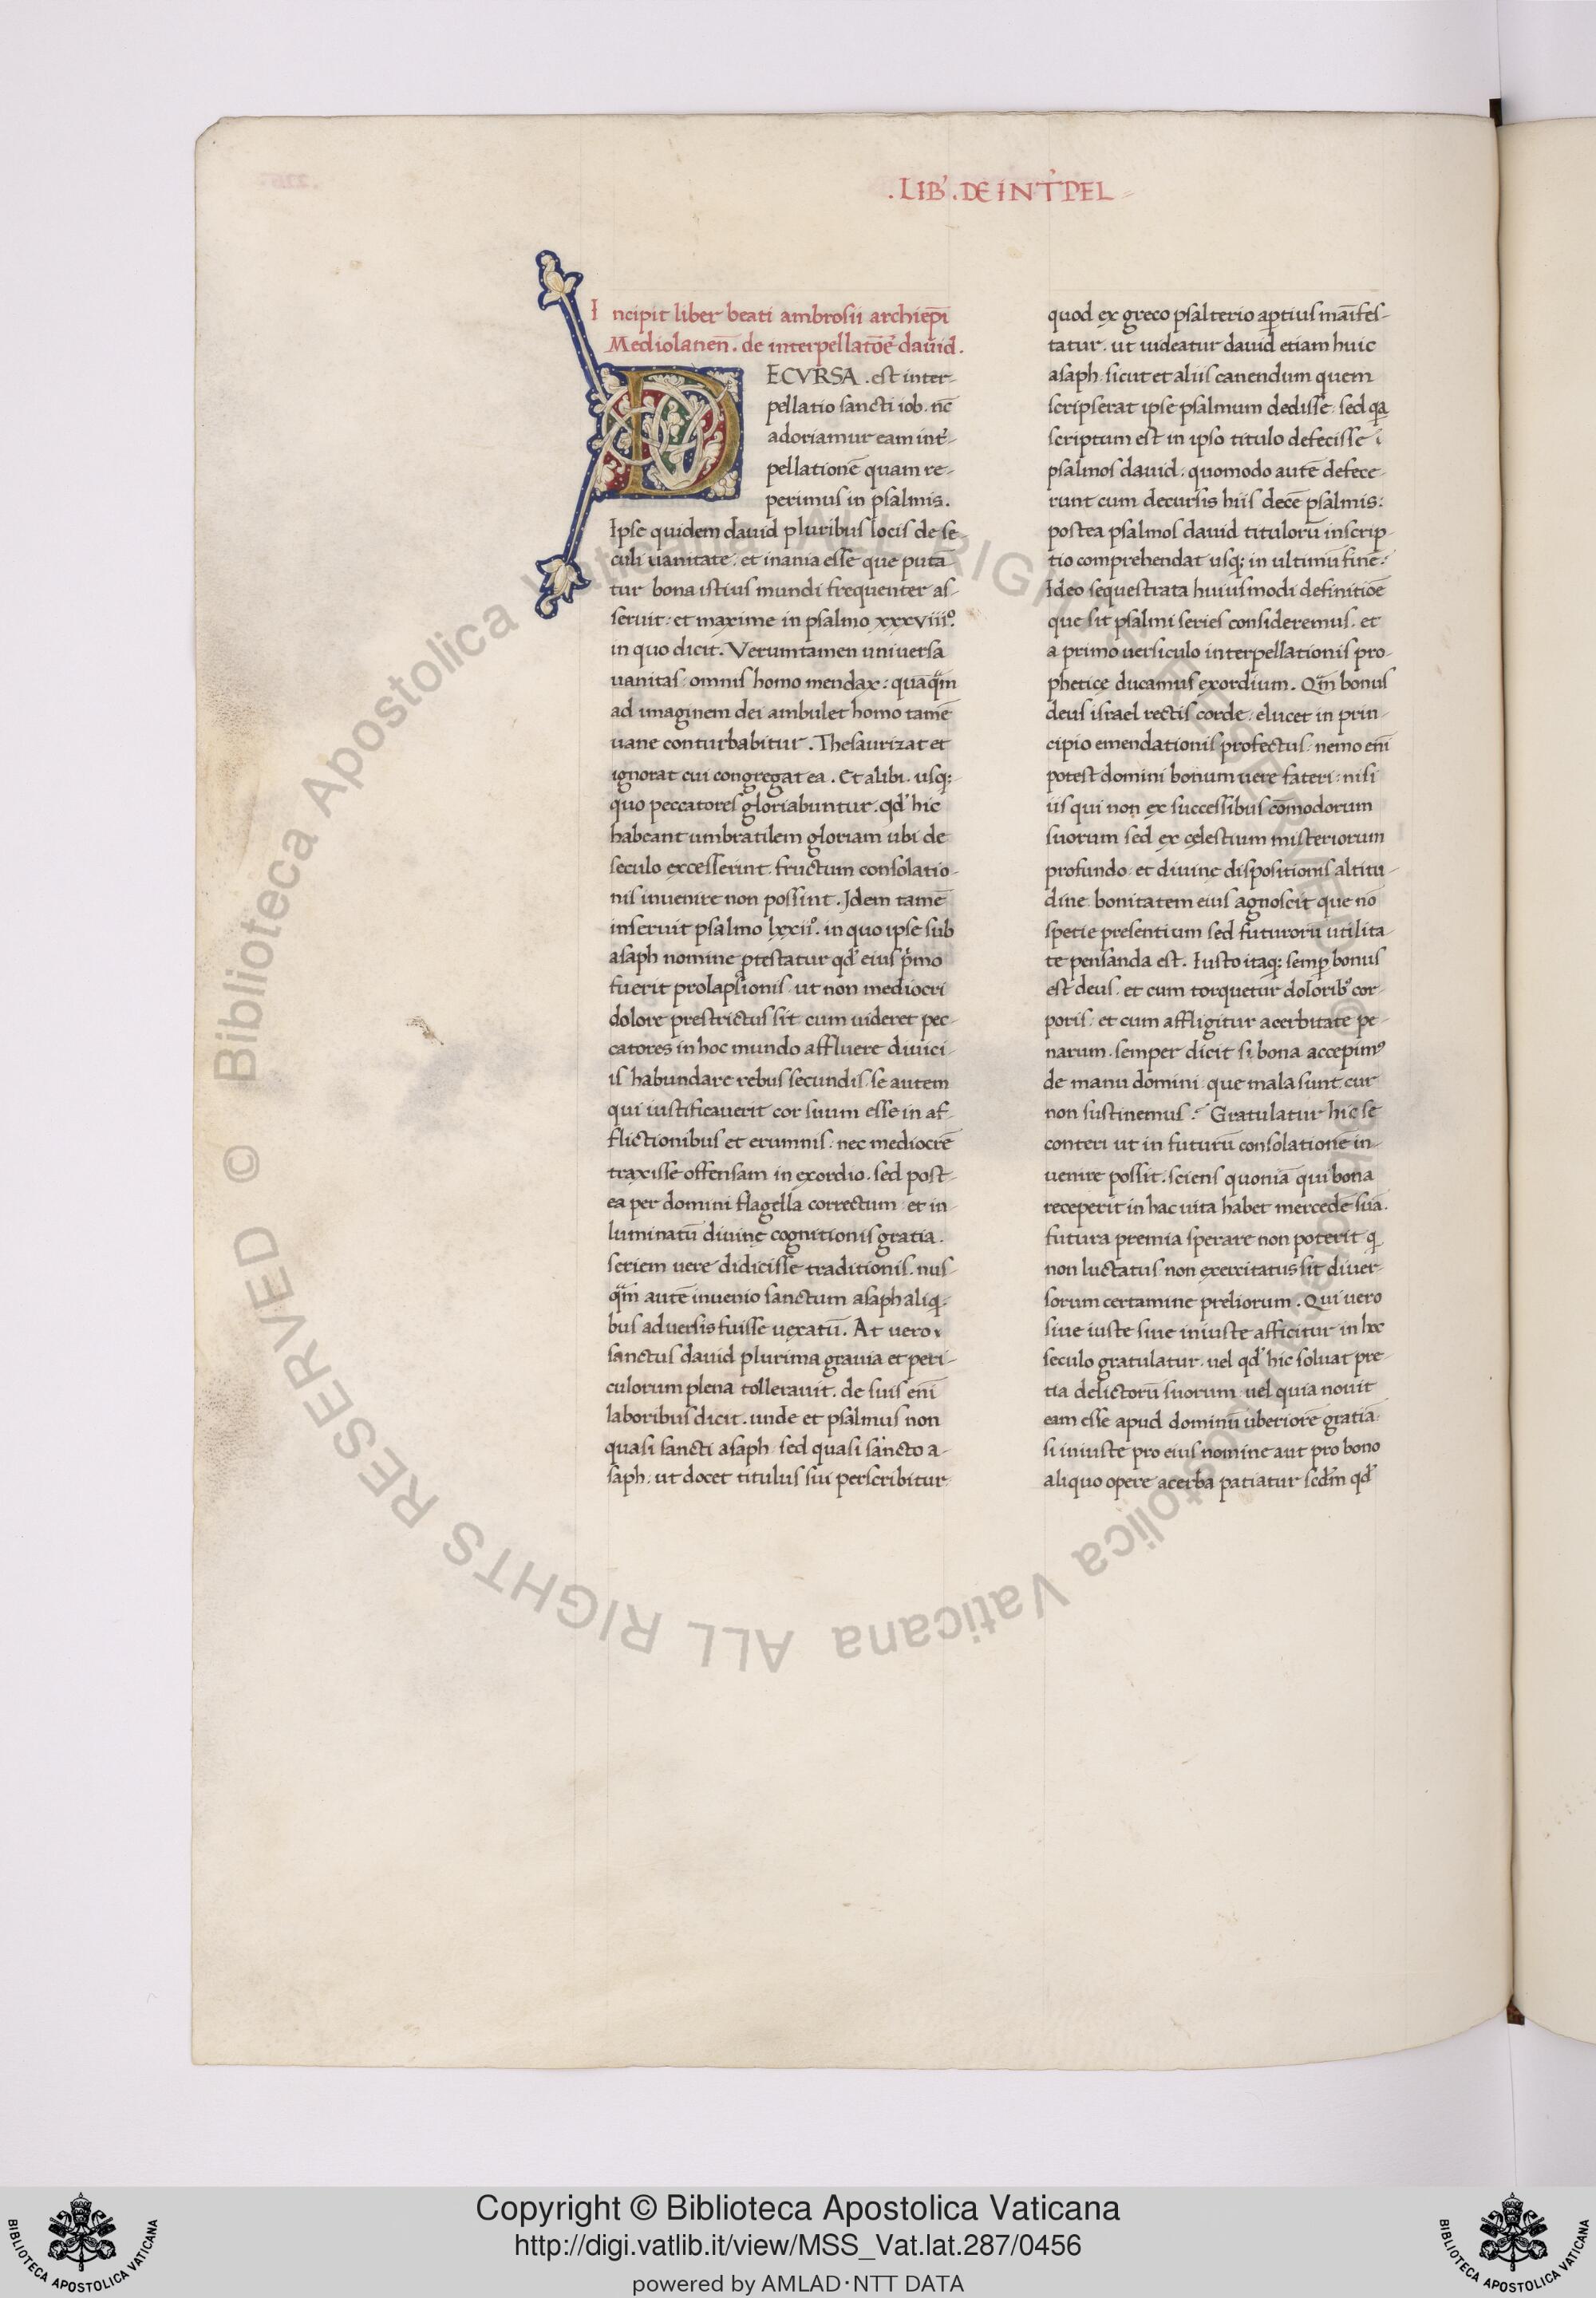 .LIB'.DE INT'PEL
Incipit liber beati ambrosii archiep̄i
Mediolanen̄. de interpellatōe dauid.
DECVRSA . est inter-
pellatio sancti iob. nc̄
adoriamur eam int'-
pellationē quam re-
perimus in psalmis.
Ipse quidem dauid pluribus locis de se-
culi uanitate: et inania esse que putā
tur bona istius mundi frequenter as-
seruit: et maxime in psalmo xxxviiiº.
in quo dicit. Verumtamen uniuersa
uanitas: omnis homo mendax: quāq̄m
ad imaginem dei ambulet homo tamē
uane conturbabitur. Thesaurizat et
ignorat cui congregat ea. Et alibi. usq;
quo peccatores gloriabuntur. qd' hic
habeant umbratilem gloriam ubi de
seculo excesserint. fructum consolatio-
nis inuenire non possint. Idem tamē
inseruit psalmo lxxiiº. in quo ipse sub
asaph nomine ꝓtestatur qd' eius p̄mo
fuerit prolapsionis. ut non mediocri
dolore prestrictus sit cum uideret pec-
catores in hoc mundo affluere diuici-
is habundare rebus secundis. se autem
qui iustificauerit cor suum esse in af-
flictionibus et erumnis: nec mediocrē
traxisse offensam in exordio. sed post-
ea per domini flagella correctum: et in-
luminatū diuinę cognitionis gratia.
seriem uere didicisse traditionis. nus-
q̄m autē inuenio sanctum asaph aliq-
bus aduersis fuisse uexatū. At uero
sanctus dauid plurima grauia et peri-
culorum plena tollerauit. de suis eni̅
laboribus dicit. unde et psalmus non
quasi sancti asaph: sed quasi sancto a-
saph: ut docet titulus sui perscribitur.
quod ex greco psalterio aꝑtius māifes-
tatur. ut uideatur dauid etiam huic
asaph. sicut et aliis canendum quem
scripserat ipse psalmum dedisse. sed qa
scriptum est in ipso titulo defecisse ī
psalmos dauid. quomodo autē defece-
runt cum decursis hiis decē psalmis:
postea psalmos dauid titulorū inscrip-
tio comprehendat usq; in ultimū finē:
Ideo sequestrata huiusmodi definitiōe
que sit psalmi series consideremus. et
a primo uersiculo interpellationis pro-
pheticę ducamus exordium. Qm̄ bonus
deus israel rectis corde: elucet in prin-
cipio emendationis profectus. nemo eni̅
potest domini bonum uere fateri: nisi
iis qui non ex successibus cōmodorum
suorum sed ex cęlestium misteriorum
profundo: et diuinę dispositionis altitu-
dine bonitatem eius agnoscit que nō
specie presentium sed futurorū utilita-
te pensanda est. Iusto itaq; semꝑ bonus
est deus. et cum torquetur dolorib' cor-
poris: et cum affligitur acerbitate pe-
narum. semper dicit si bona accepim'
de manu domini que mala sunt cur
non sustinemus: Gratulatur hic se
conteri ut in futurū consolationē in-
uenire possit. sciens quoniā qui bona
receperit in hac uita habet mercedē suā.
futura premia sperare non poterit q
non luctatus non exercitatus sit diuer-
sorum certamine preliorum. Qui uero
siue iuste siue iniuste afficitur in hoc
seculo gratulatur. uel qd' hic soluat pre-
tia delictorū suorum uel quia nouit
eam esse apud dominū uberiorē gratiā.
si iniuste pro eius nomine aut pro bono
aliquo opere acerba patiatur scd̄m qd'
© Biblioteca Apostolica Vaticana ALL RIGHTS RESERVED
© Biblioteca Apostolica Vaticana ALL RIGHTS RESERVED
Copyright © Biblioteca Apostolica Vaticana
http://digi.vatlib.it/view/MSS_Vat.lat.287/0456
powered by AMLAD·NTT DATA
BIBLIOTECA APOSTOLICA VATICANA
BIBLIOTECA APOSTOLICA VATICANA